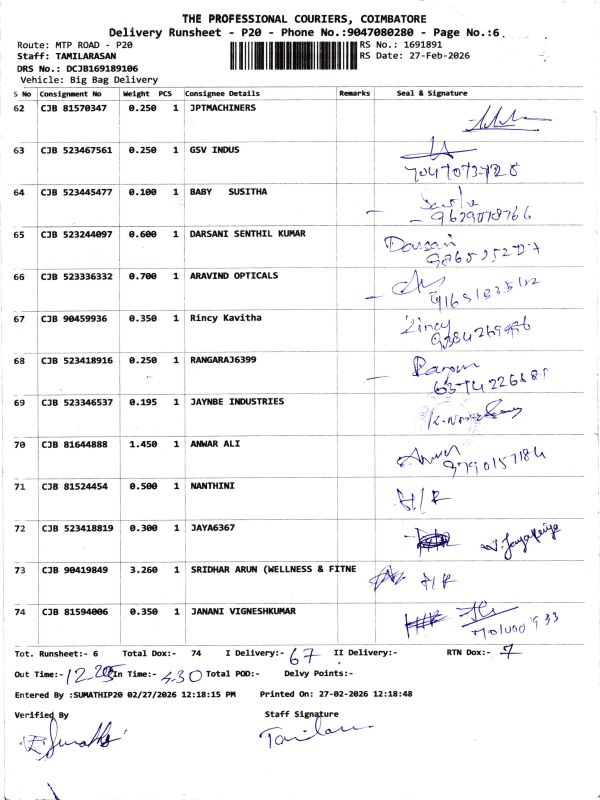 THE PROFESSIONAL COURIERS, COIMBATORE
Delivery Runsheet - P20 - Phone No.:9047080280 - Page No.:6
Route: MTP ROAD - P20 RS No.: 1691891
Staff: TAMILARASAN RS Date: 27-Feb-2026
DRS No.: DCJB169189106
Vehicle: Big Bag Delivery
S No Consignment No Weight PCS Consignee Details Remarks Seal & Signature
62 CJB 81570347 0.250 1 JPTMACHINERS
63 CJB 523467561 0.250 1 GSV INDUS
64 CJB 523445477 0.100 1 BABY SUSITHA
9629078766
65 CJB 523244097 0.600 1 DARSANI SENTHIL KUMAR Darsani
66 CJB 523336332 0.700 1 ARAVIND OPTICALS
67 CJB 90459936 0.350 1 Rincy Kavitha Rincy
68 CJB 523418916 0.250 1 RANGARAJ6399
69 CJB 523346537 0.195 1 JAYNBE INDUSTRIES
70 CJB 81644888 1.450 1 ANWAR ALI Anwar
9790157184
71 CJB 81524454 0.500 1 NANTHINI
72 CJB 523418819 0.300 1 JAYA6367
73 CJB 90419849 3.260 1 SRIDHAR ARUN (WELLNESS & FITNE
74 CJB 81594006 0.350 1 JANANI VIGNESHKUMAR
Tot. Runsheet:- 6 Total Dox:- 74 I Delivery:- 67 II Delivery:- RTN Dox:- 7
Out Time:- 12.25 In Time:- 4.30 Total POD:- Delvy Points:-
Entered By :SUMATHIP20 02/27/2026 12:18:15 PM Printed On: 27-02-2026 12:18:48
Verified By Staff Signature